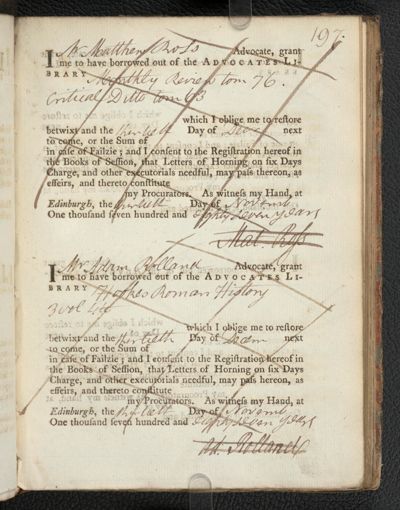 197.
I Mr Matthew Ross Advocate, grant
me to have borrowed out of the ADVOCATES LI-
BRARY Monthly Review tom 76.
Critical Ditto tom 63
which I oblige me to reſtore
betwixt and the thirtieth Day of Decem next
to come, or the Sum of
in caſe of Failzie; and I conſent to the Regiſtration hereof in
the Books of Seſſion, that Letters of Horning on ſix Days
Charge, and other executorials needful, may paſs thereon, as
effeirs, and thereto conſtitute
my Procurators. As witneſs my Hand, at
Edinburgh, the thirtieth Day of Novemr
One thouſand ſeven hundred and Eighty Seven years
Mat. Ross
I Mr Adam Rolland Advocate, grant
me to have borrowed out of the ADVOCATES LI-
BRARY Hooke's Roman History
3 vol
which I oblige me to reſtore
betwixt and the thirtieth Day of Decem next
to come, or the Sum of
in caſe of Failzie; and I conſent to the Regiſtration hereof in
the Books of Seſſion, that Letters of Horning on ſix Days
Charge, and other executorials needful, may paſs hereon, as
effeirs, and thereto conſtitute
my Procurators. As witneſs my Hand, at
Edinburgh, the thirtieth Day of Novemr
One thouſand ſeven hundred and Eighty Seven years
Ad. Rolland